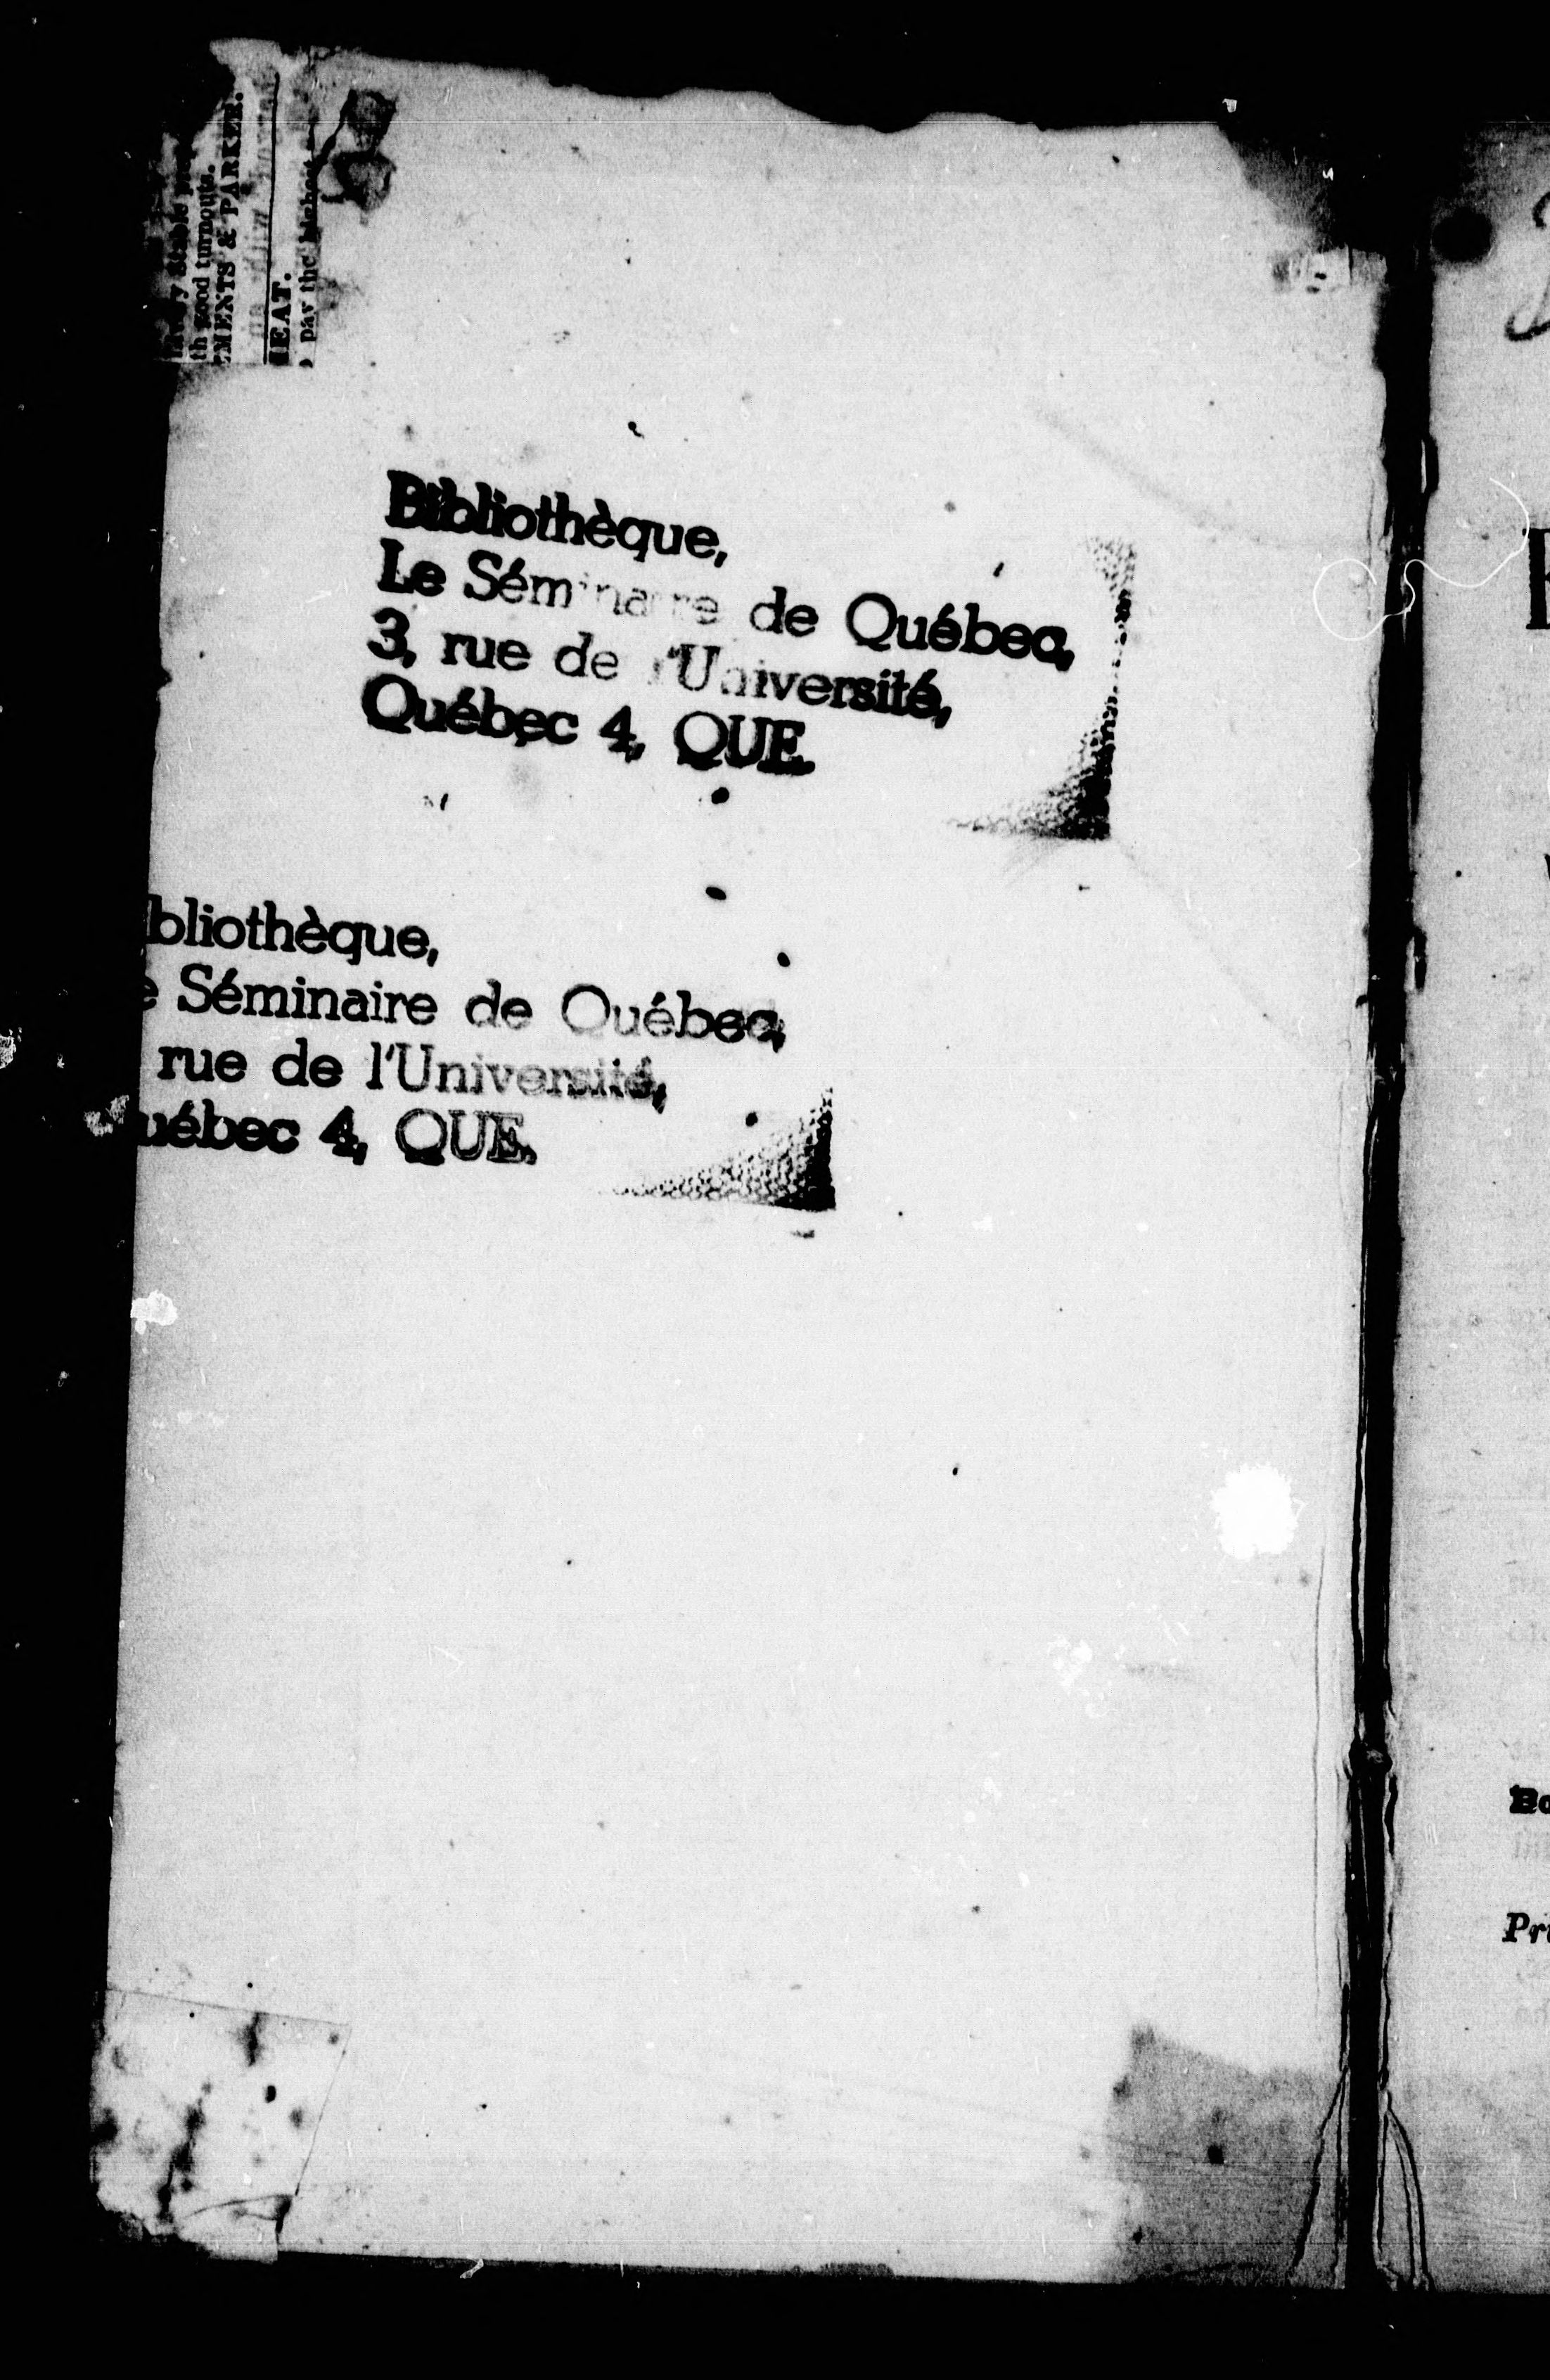 good turnouts.
MENTS & PARKER.
EAT.
pay the highest
Bibliothèque,
Le Séminaire de Québec,
3, rue de l'Université,
Québec 4, QUE.
bliothèque,
e Séminaire de Québec,
rue de l'Université,
uébec 4, QUE.
Bo
Pri